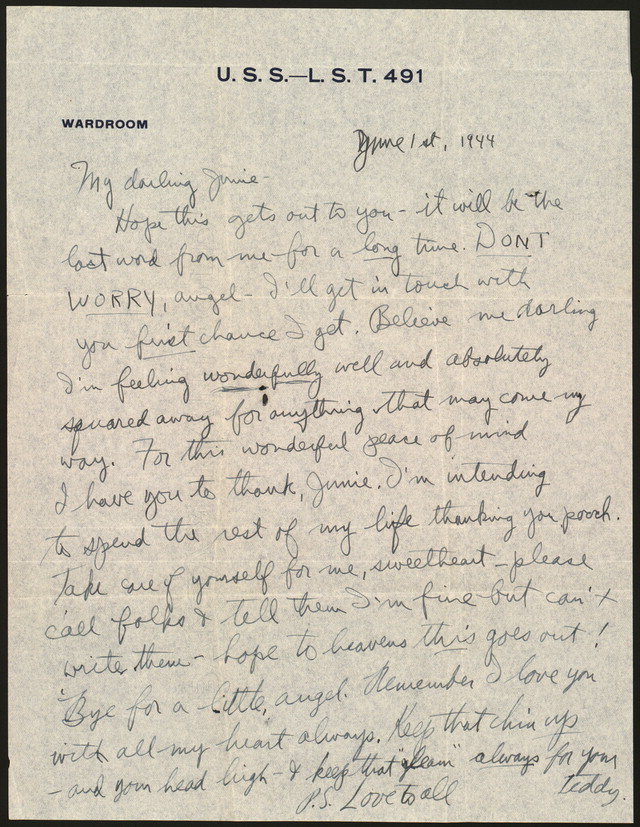 U. S. S.—L. S. T. 491
WARDROOM
June 1st, 1944
My darling Junie-
Hope this gets out to you - it will be the
last word from me for a long time. DONT
WORRY, angel - I'll get in touch with
you first chance I get. Believe me darling
I'm feeling wonderfully well and absolutely
squared away for anything that may come my
way. For this wonderful peace of mind
I have you to thank, Junie. I'm intending
to spend the rest of my life thanking you pooch.
Take care of yourself for me, sweetheart - please
call folks & tell them I'm fine but can't
write them - hope to heavens this goes out!
'Bye for a little, angel. Remember I love you
with all my heart always. Keep that chin up
- and your head high - & keep that "gleam" always for your
Teddy.
P.S. Love to all